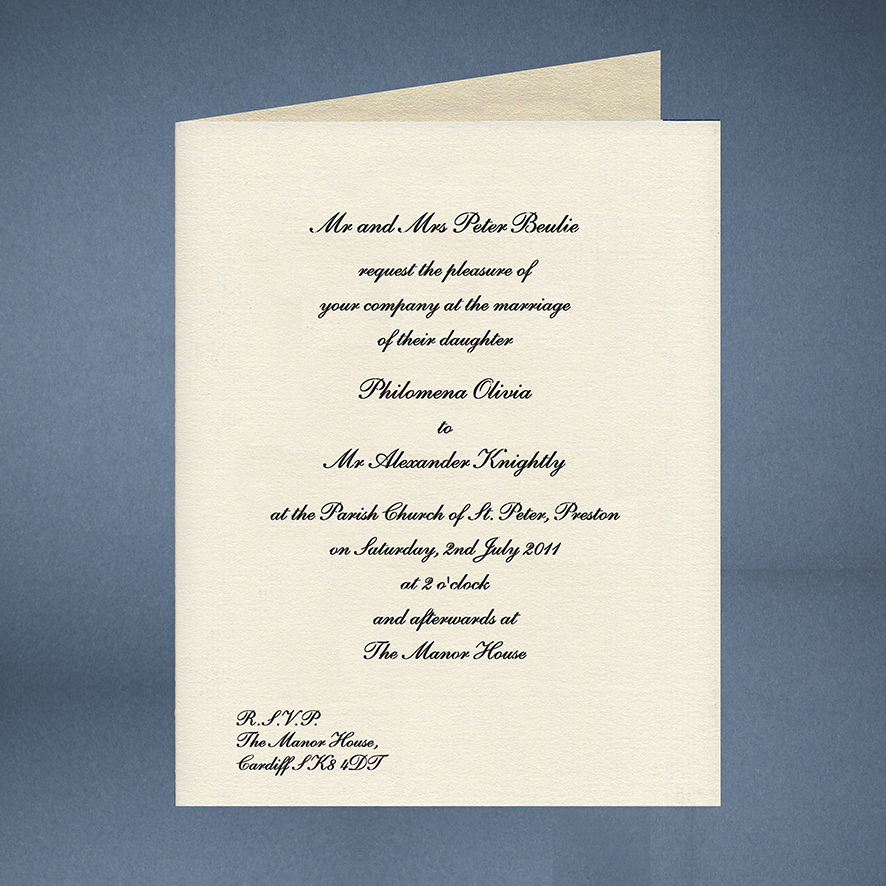 Mr and Mrs Peter Beulie
request the pleasure of
your company at the marriage
of their daughter
Philomena Olivia
to
Mr Alexander Knightly
at the Parish Church of St. Peter, Preston
on Saturday, 2nd July 2011
at 2 o'clock
and afterwards at
The Manor House
R.S.V.P.
The Manor House,
Cardiff SK8 4DT